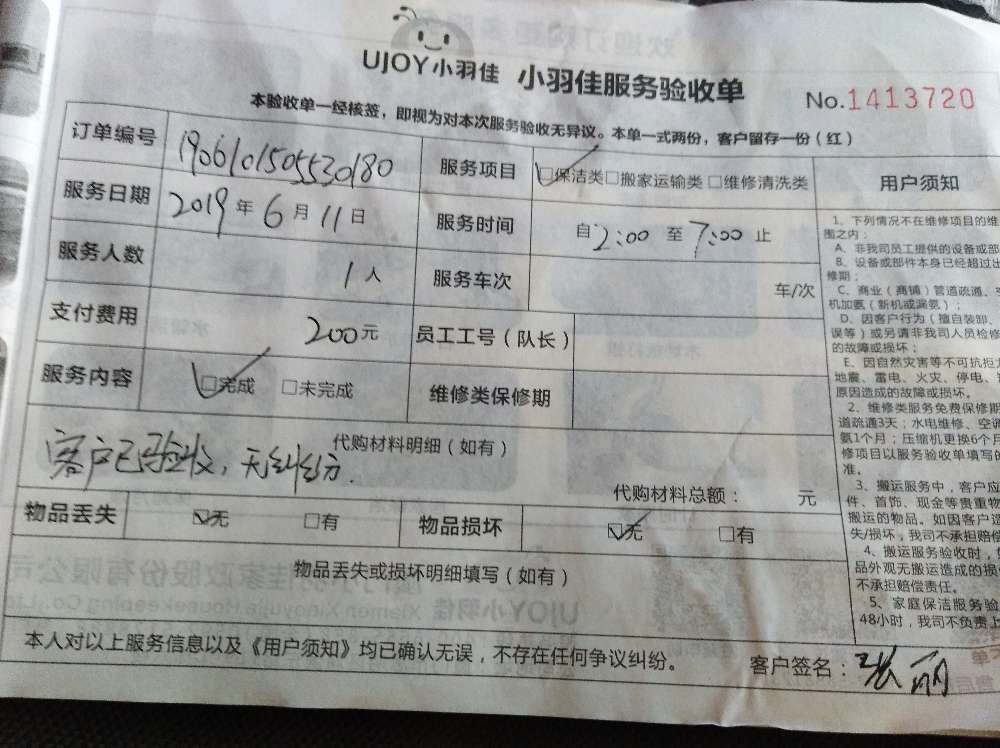 UJOY小羽佳 小羽佳服务验收单
No.1413720
本验收单一经核签，即视为对本次服务验收无异议。本单一式两份，客户留存一份（红）
订单编号 1906101505530180 服务项目 □保洁类□搬家运输类 □维修清洗类
服务日期 2019年6月11日 服务时间 自2:00至7:00止
服务人数 1人 服务车次 车/次
支付费用 200元 员工工号（队长）
服务内容 □完成 □未完成 维修类保修期
代购材料明细（如有）
客户已验收，无纠纷.
代购材料总额： 元
物品丢失 □无 □有 物品损坏 □无 □有
物品丢失或损坏明细填写（如有）
本人对以上服务信息以及《用户须知》均已确认无误，不存在任何争议纠纷。
客户签名：张丽
用户须知
1、下列情况不在维修项目的维
围之内：
A、非我司员工提供的设备或部
B、设备或部件本身已经超过出
修期；
C、商业（商铺）管道疏通、
机加氨（新机或漏氨）；
D、因客户行为（擅自装卸、
误等）或另请非我司人员检修
的故障或损坏；
E、因自然灾害等不可抗拒
地震、雷电、火灾、停电、
原因造成的故障或损坏。
2、维修类服务免费保修期
道疏通3天；水电维修、空调
氨1个月；压缩机更换6个月
修项目以服务验收单填写的
准。
3、搬运服务中，客户应
件、首饰、现金等贵重物
搬运的物品。如因客户
失/损坏，我司不承担赔偿
4、搬运服务验收时，
品外观无搬运造成的损
不承担赔偿责任。
5、家庭保洁服务验
48小时，我司不负责上